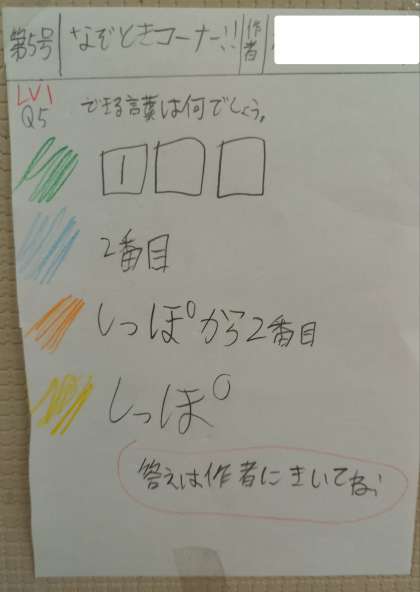 第5号 なぞときコーナー!! 作者
LV1
Q5 できる言葉は何でしょう。
1
2番目
しっぽから2番目
しっぽ
答えは作者にきいてね!